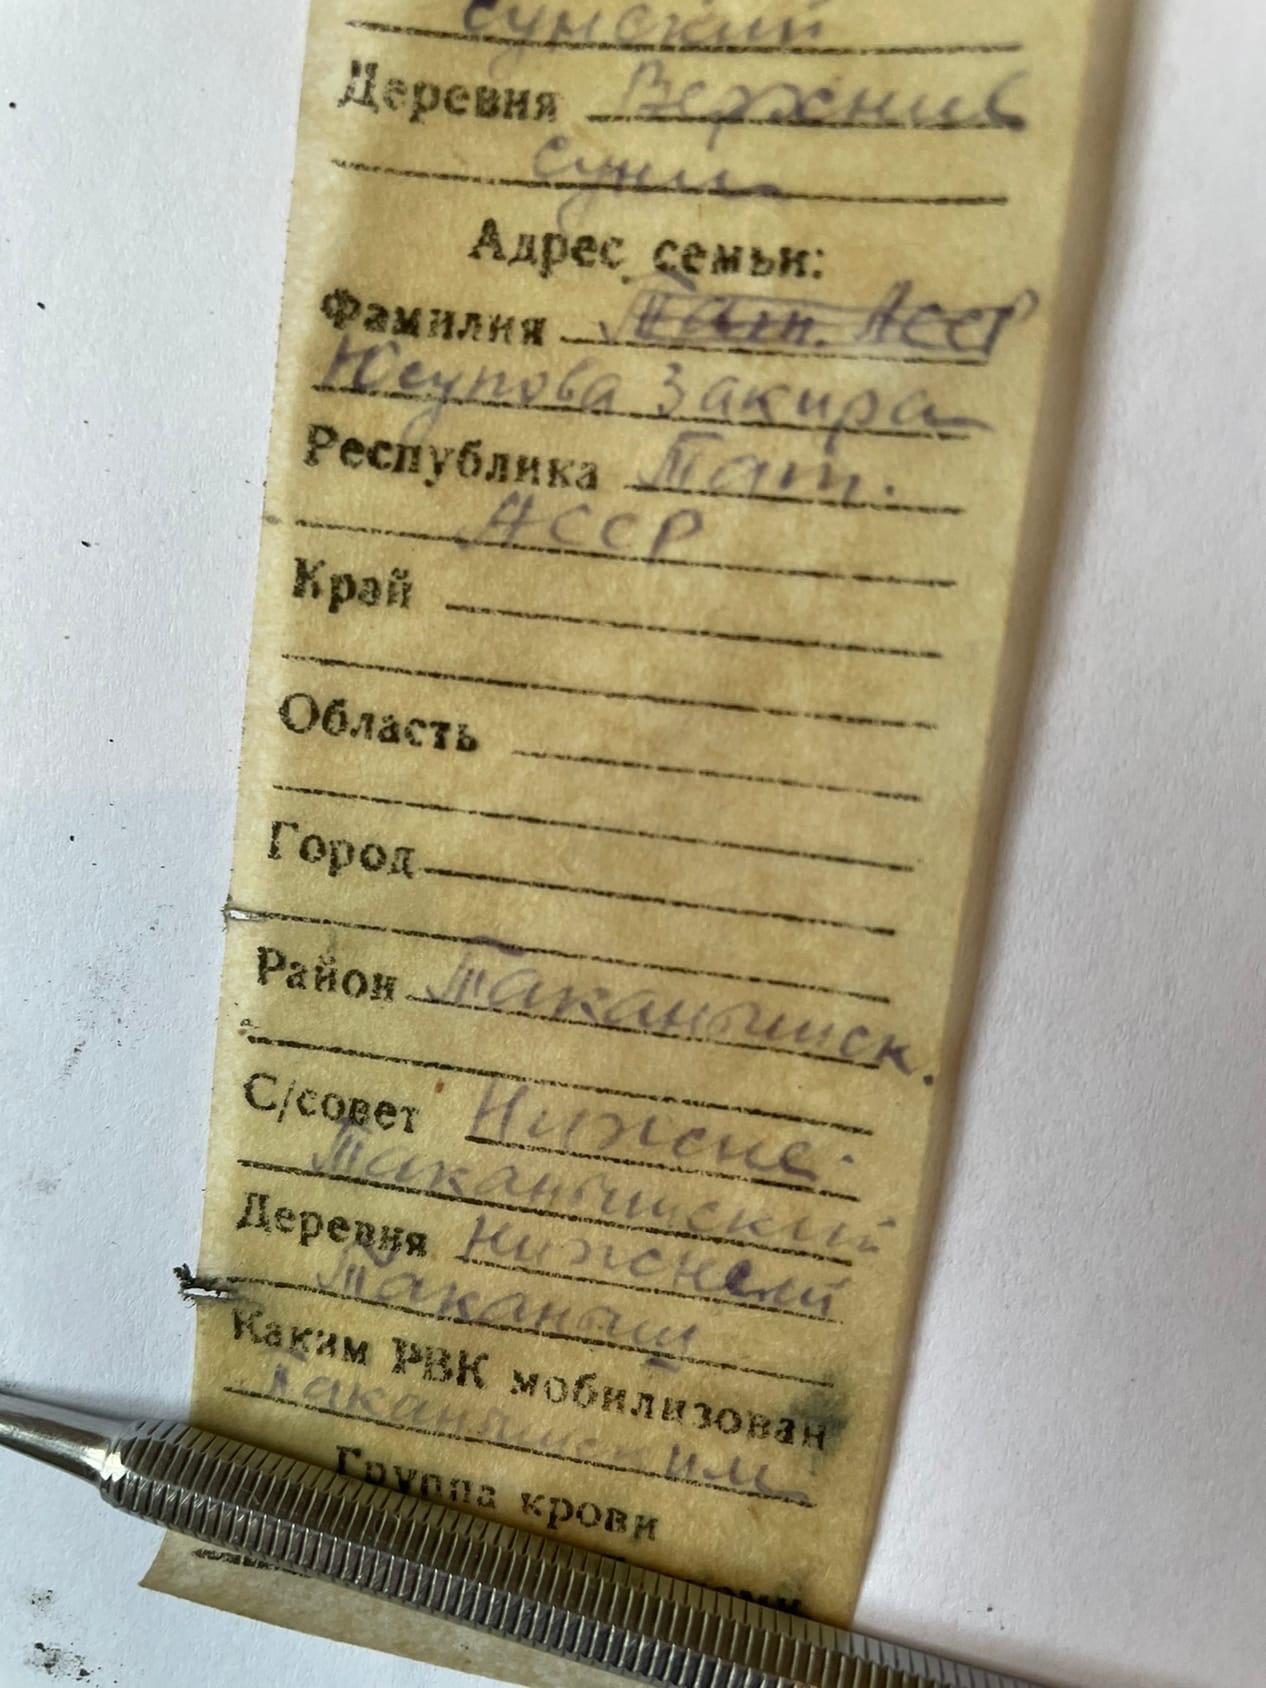 Сунский
Деревня Верхние
Суни
Адрес семьи:
Фамилия Тат. АССР
Юсупова Закира
Республика Тат.
АССР
Край
Область
Город
Район Таканышск.
С/совет Нижне-
Таканышский
Деревня Нижний
Таканыш
Каким РВК мобилизован
Таканышским
Группа крови